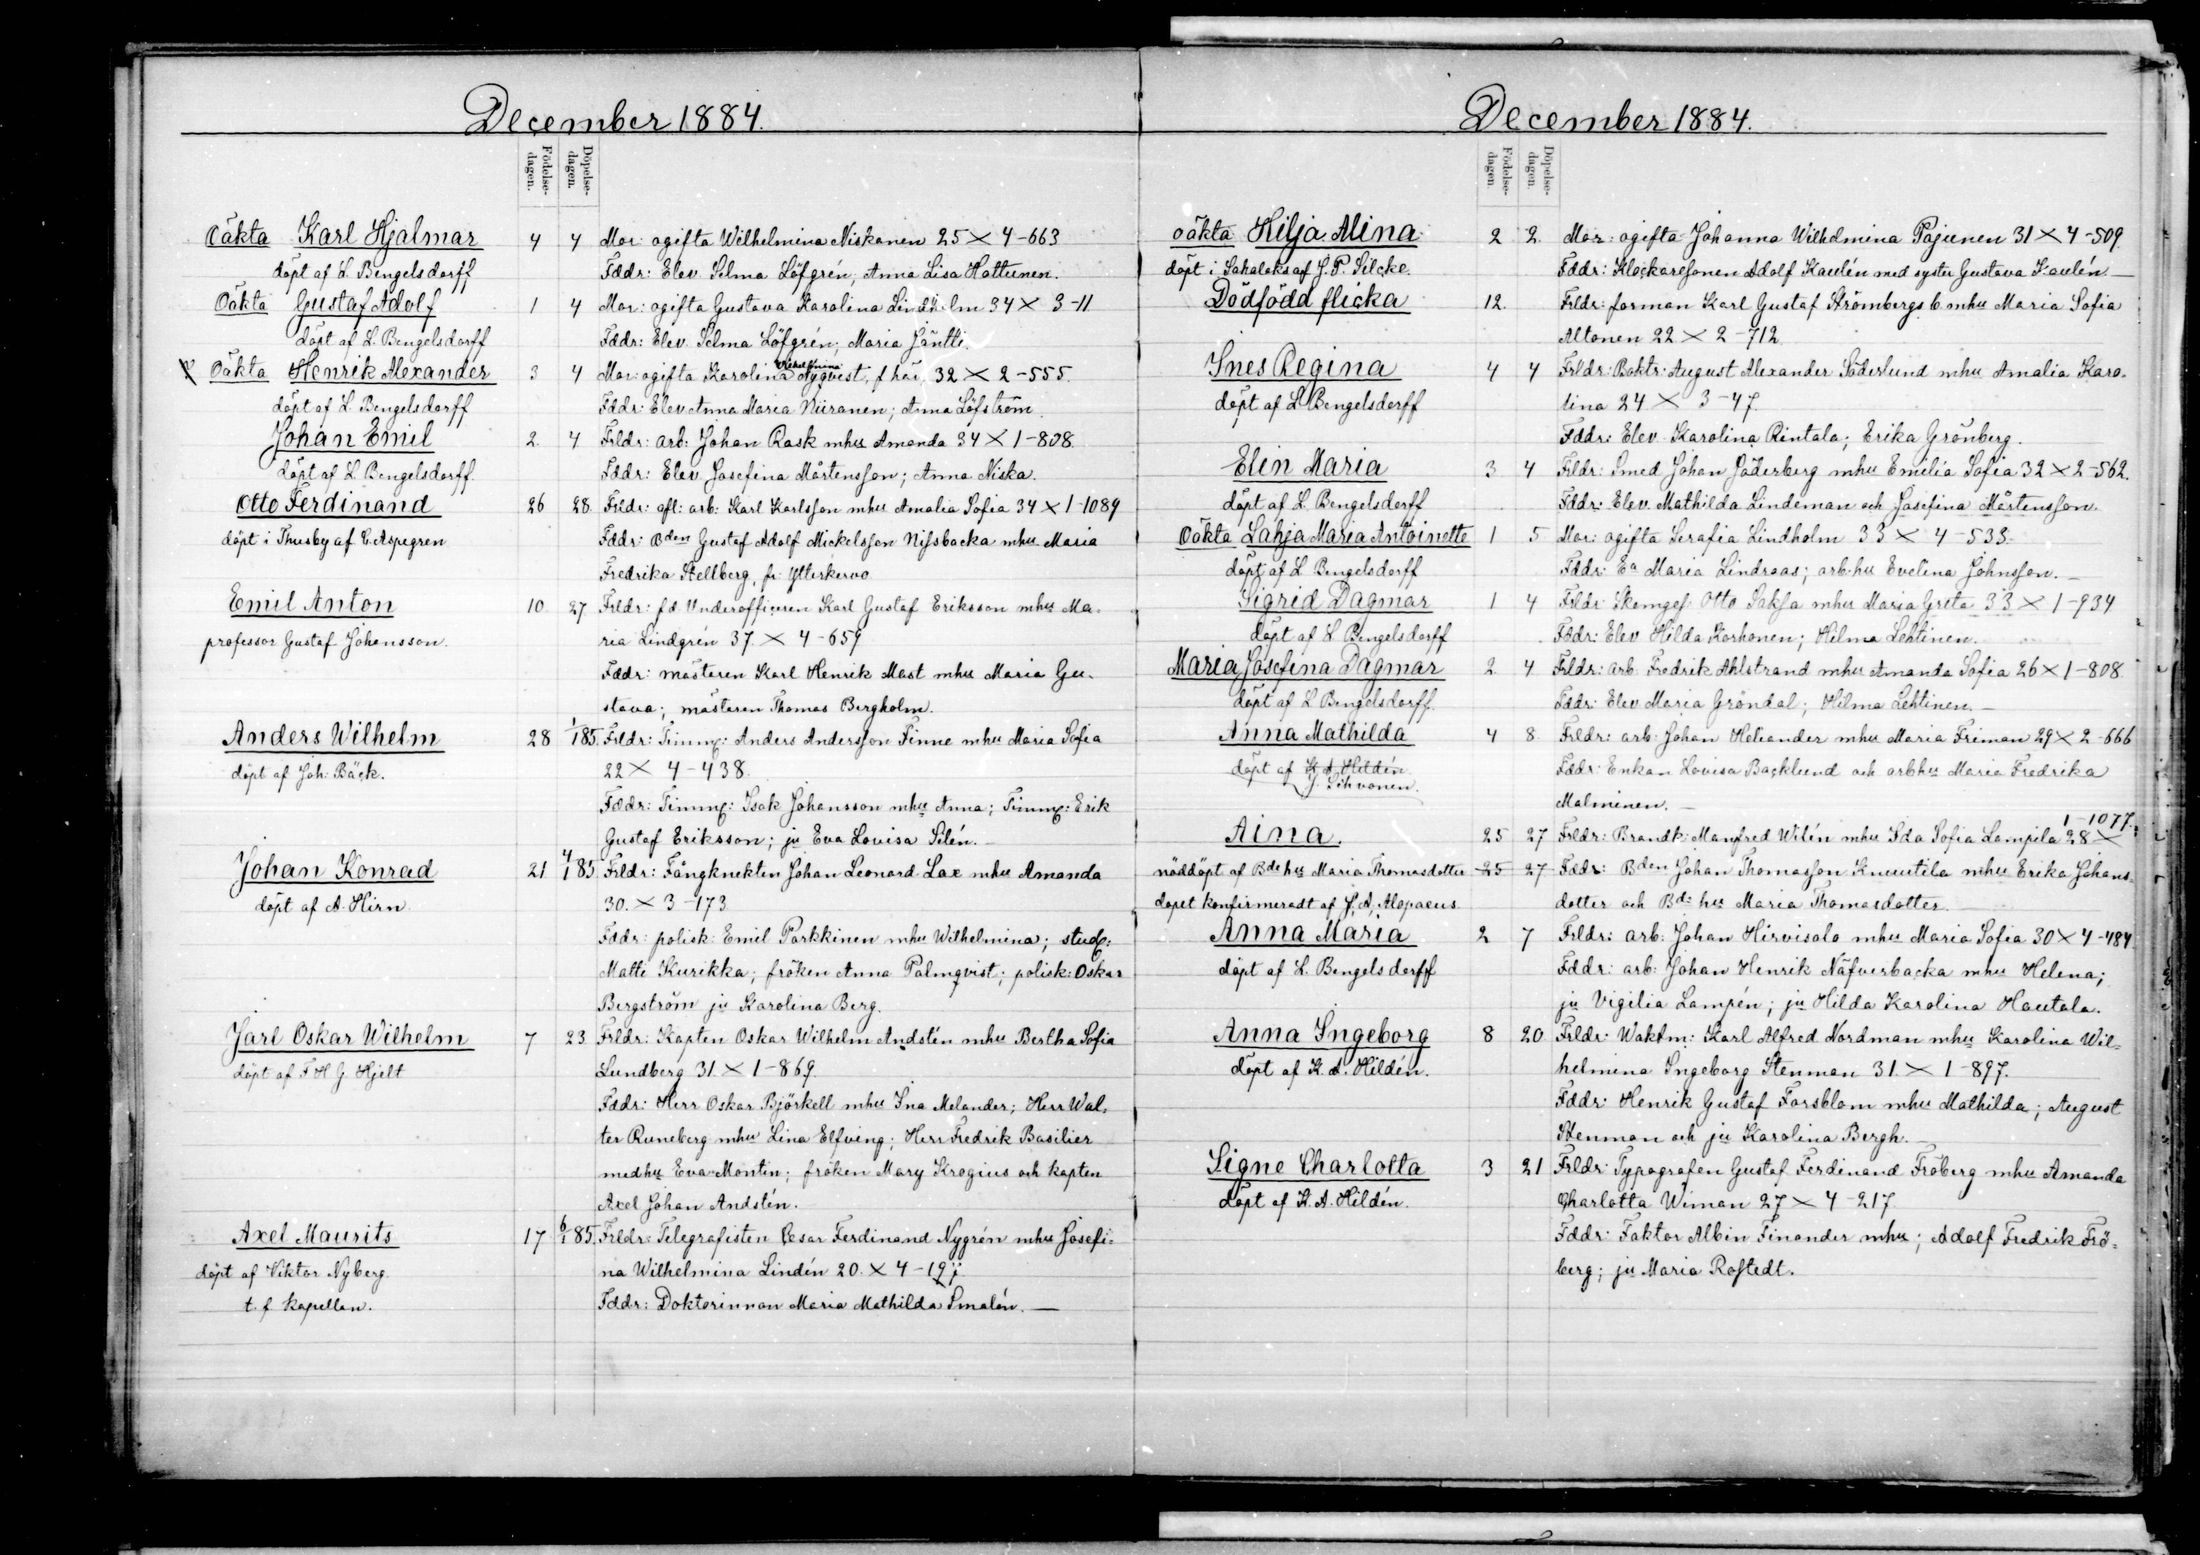 December 1884.
Födelse-dagen.
Döpelse-dagen.
Oäkta Karl Hjalmar 4 4 Mor: ogifta Wilhelmina Niskanen 25 × 4-663
döpt af L. Bengelsdorff Fddr: Elev. Selma Löfgrén, Anna Lisa Hattunen.
Oäkta Gustaf Adolf 1 4 Mor: ogifta Gustava Karolina Lindholm 34 × 3-11
döpt af L. Bengelsdorff Fddr: Elev. Selma Löfgrén; Maria Jäntti.
Wilhelmina
Oäkta Henrik Alexander 3 4 Mor: ogifta Karolina Nyqvist, f här, 32 × 2-555.
döpt af L. Bengelsdorff Fddr: Elev Anna Maria Niiranen; Anna Löfström.
Johan Emil 2. 4 Frldr: arb: Johan Rask mhu Amanda 34 × 1-808
döpt af L. Bengelsdorff Fddr: Elev. Josefina Mårtensson; Anna Niska.
Otto Ferdinand 26 28. Frldr: afl: arb: Karl Karlsson mhu Amalia Sofia 34 × 1-1089
döpt i Thusby af C. Aspegren Fddr: Bden Gustaf Adolf Mickelsson Nissbacka mhu Maria
Fredrika Stellberg, fr: Ytterkervo
Emil Anton 10. 27 Frldr: fd. Underofficeren Karl Gustaf Eriksson mhu Ma-
professor Gustaf Johansson. ria Lindgrén 37. × 4-659
Fddr: mästaren Karl Henrik Mast mhu Maria Gu-
stava; mästaren Thomas Bergholm.
Anders Wilhelm 28 1/185. Frldr: Timmg: Anders Andersson Finne mhu Maria Sofia
döpt af Joh: Bäck. 22 × 4-438.
Fddr: Timmg: Isak Johansson mhu Anna; Timmg: Erik
Gustaf Eriksson; ju Eva Lovisa Silén.
Johan Konrad 21 4/1 85 Frldr: Fångknekten Johan Leonard Lax mhu Amanda
döpt af A. Hirn 30. × 3-173
Fddr: polisk: Emil Parkkinen mhu Wilhelmina; stud:
Matti Kurikka; fröken Anna Palmqvist; polisk: Oskar
Bergström ju Karolina Berg.
Jarl Oskar Wilhelm 7 23. Frldr: Kapten Oskar Wilhelm Andstén mhu Bertha Sofia
döpt af F H G Hjelt Lundberg 31. × 1-869.
Fddr: Herr Oskar Björkell mhu Ina Melander; Herr Wal-
ter Runeberg mhu Lina Elfving; Herr Fredrik Basilier
medhu Eva Montin; fröken Mary Krogius och kapten
Axel Johan Andstén.
Axel Maurits 17 6/1 85. Frldr: Telegrafisten Cesar Ferdinand Nygrén mhu Josefi-
döpt af Viktor Nyberg. na Wilhelmina Lindén 20. × 4-19
t. f kapellan. Fddr: Doktorinnan Maria Mathilda Smalén.
December 1884.
Födelse-dagen.
Döpelse-dagen.
oäkta Hilja Alina 2 2. Mor: ogifta Johanna Wilhelmina Pajunen 31 × 4-509.
döpt i Sahalaks af J. P. Silcke. Fddr: Klockaresonen Adolf Kaulén med syster Gustava Kaulén
Dödfödd flicka 12. Frldr: forman Karl Gustaf Strömbergs o. mhu Maria Sofia
Altonen 22 × 2-712.
Ines Regina 4 4 Frldr: Baktr: August Alexander Söderlund mhu Amalia Karo-
döpt af L Bengelsdorff lina 24 × 3-47.
Fddr: Elev. Karolina Rintala; Erika Grönberg.
Elin Maria 3 4 Frldr: Smed Johan Söderberg mhu Emilia Sofia 32 × 2-562.
döpt af L. Bengelsdorff Fddr: Elev. Mathilda Lindeman och Josefina Mårtensson.
Oäkta Lahja Maria Antoinette 1 5 Mor: ogifta Serafia Lindholm 33 × 4-533.
döpt af L Bengelsdorff Fddr: Ea Maria Lindroos; arb.hu Evelina Johnsson.
Sigrid Dagmar 1 4 Frldr: Skomges: Otto Saksa mhu Maria Greta 33 × 1-934
döpt af L Bengelsdorff Fddr: Elev Hilda Korhonen; Hilma Lehtinen.
Maria Josefina Dagmar 2 4 Frldr: arb. Fredrik Ahlstrand mhu Amanda Sofia 26 × 1-808.
döpt af L Bengelsdorff. Fddr: Elev Maria Gröndal; Hilma Lehtinen.
Anna Mathilda 4 8. Frldr: arb: Johan Heliander mhu Maria Friman 29 × 2-666
döpt af K. A. Hildén Fddr: Enkan Lovisa Backlund och arbhu Maria Fredrika
J. Sihvonen. Malminen.
1-1077.
Aina. 25 27 Frldr: Brandk: Manfred Wilén mhu Ida Sofia Lampila 28 ×
nöddöpt af Bdehu Maria Thomasdotter 25 27 Fddr: Bden Johan Thomasson Knuutila mhu Erika Johans-
dopet konfirmeradt af J. A. Alopaeus dotter och Bde hu Maria Thomasdotter
Anna Maria 2 7 Frldr: arb: Johan Hirvisalo mhu Maria Sofia 30 × 4-484
döpt af L. Bengelsdorff Fddr: arb: Johan Henrik Näfverbacka mhu Helena;
ju Vigilia Lampén; ju Hilda Karolina Hautala.
Anna Ingeborg 8 20 Frldr: Waktm: Karl Alfred Nordman mhu Karolina Wil-
döpt af K. A. Hildén. helmina Ingeborg Stenman 31. × 1-897.
Fddr: Henrik Gustaf Forsblom mhu Mathilda; August
Stenman och ju Karolina Bergh.
Signe Charlotta 3 21 Frldr: Typografen Gustaf Ferdinand Fröberg mhu Amanda
döpt af K. A. Hildén. Charlotta Wiman 27 × 4-217.
Fddr: Faktor Albin Finander mhu; Adolf Fredrik Frö-
berg; ju Maria Rostedt.